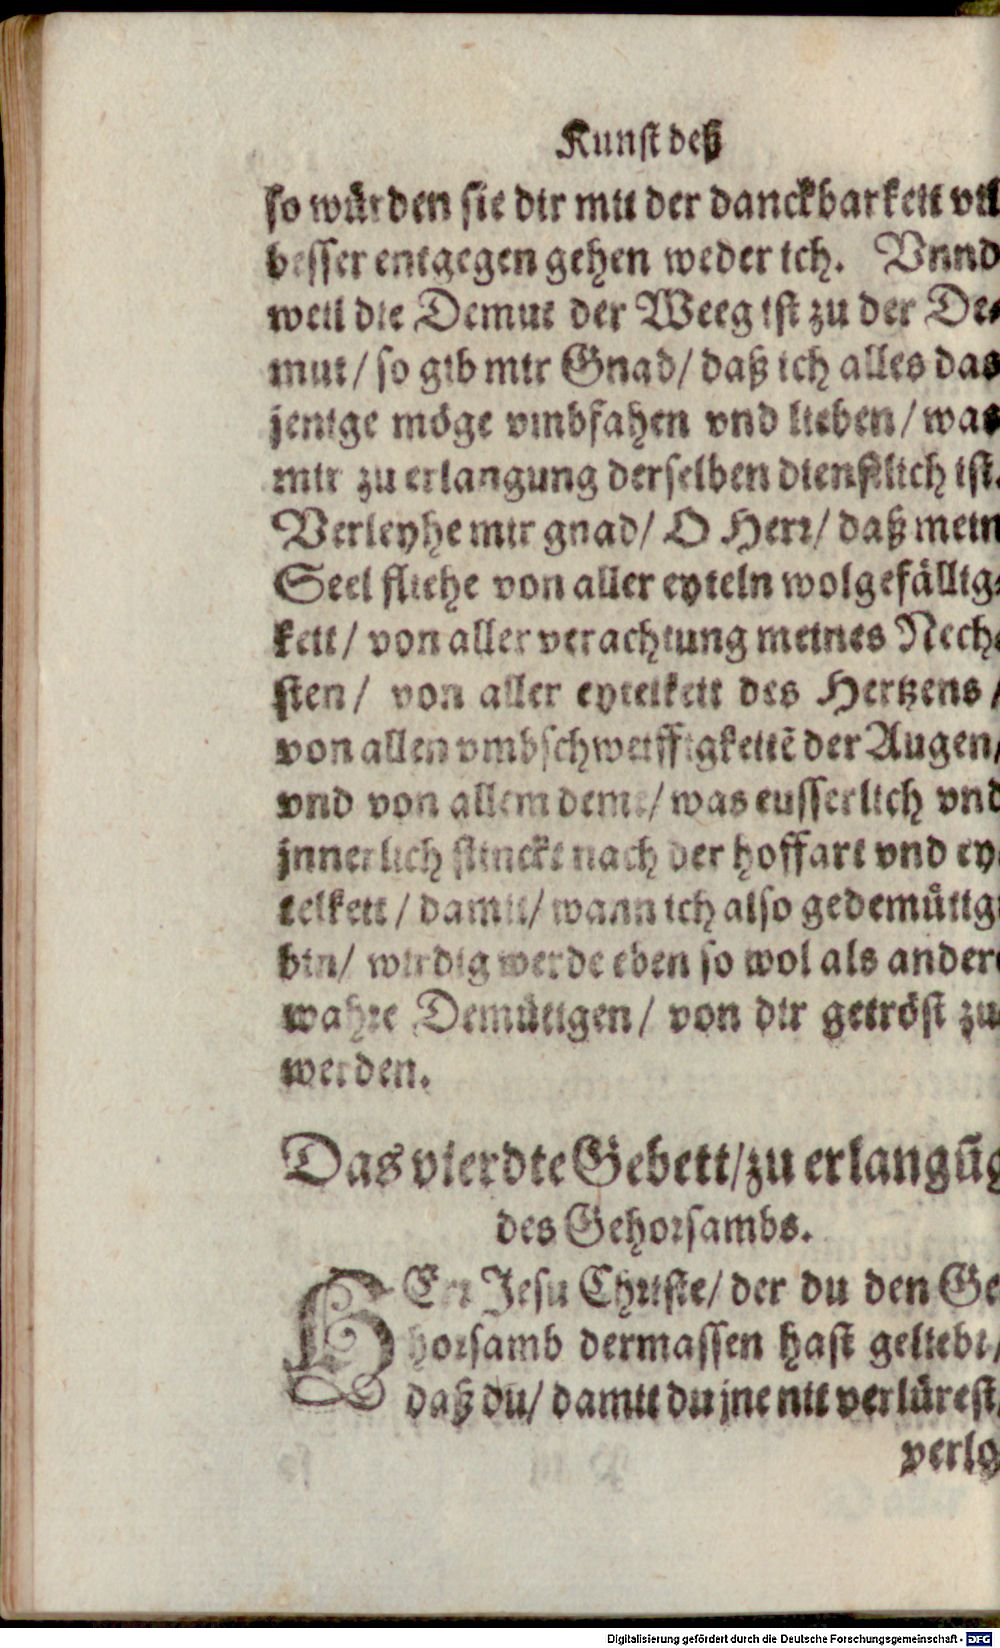 Kunst deß
so würden sie dir mit der danckbarkeit vil
besser entgegen gehen weder ich. Vnnd
weil die Demut der Weeg ist zu der De-
mut / so gib mir Gnad / daß ich alles das
jenige möge vmbfahen vnd lieben / was
mir zu erlangung derselben dienstlich ist.
Verleyhe mir gnad / O Herr / daß mein
Seel fliehe von aller eyteln wolgefällig-
keit / von aller verachtung meines Nech-
sten / von aller eytelkeit des Hertzens /
von allen vmbschweiffigkeitẽ der Augen /
vnd von allem deme / was eusserlich vnd
jnnerlich stinckt nach der hoffart vnd ey-
telkeit / damit / wann ich also gedemütigt
bin / wirdig werde eben so wol als andere
wahre Demütigen / von dir getröst zu
werden.
Das vierdte Gebett / zu erlangũg
des Gehorsambs.
HErr Jesu Christe / der du den Ge
horsamb dermassen hast geliebt /
daß du / damit du jne nit verlürest /
verlo
Digitalisierung gefördert durch die Deutsche Forschungsgemeinschaft - DFG